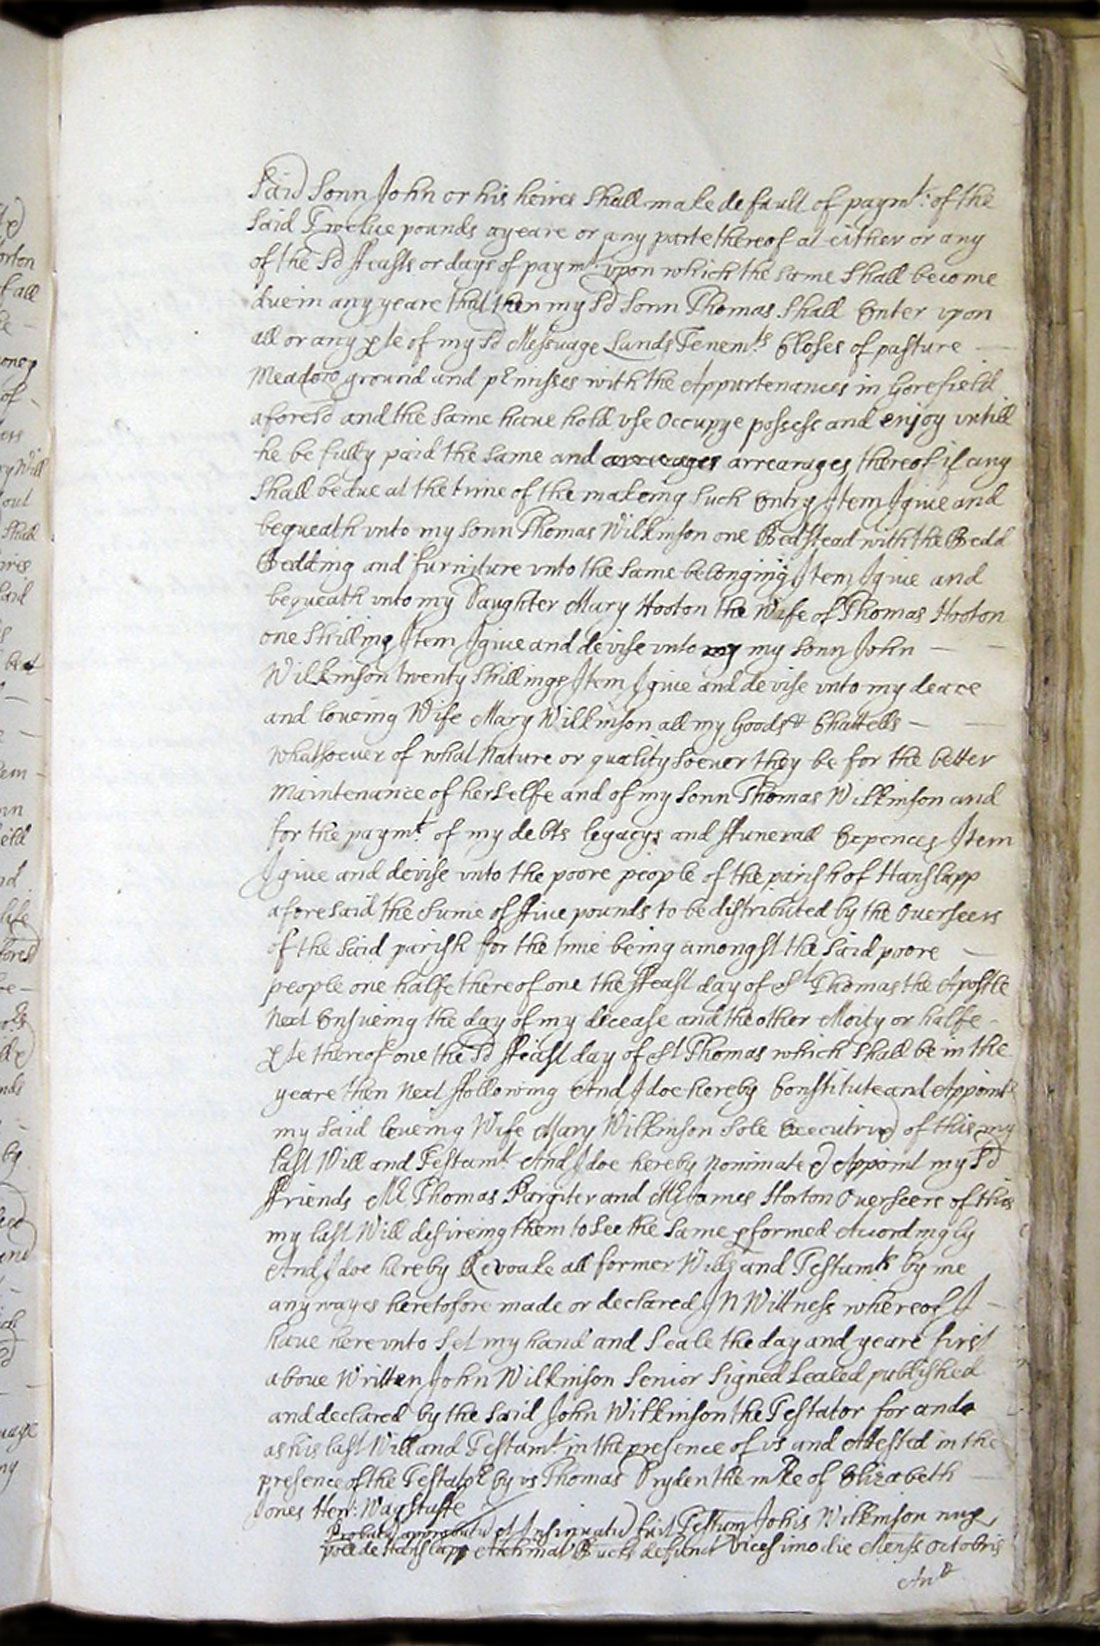 said sonn John or his heires shall make default of paymt: of the
said Twelve pounds a yeare or any parte thereof at either or any
of the sd ffeasts or days of paymt: upon which the same shall become
due in any yeare that then my sd sonn Thomas shall Enter vpon
all or any pte of my sd Messuage Lands Tenemts Closes of pasture
Meadow ground and pmisses with the Appurtenances in Gorefield
aforesd and the same have hold vse Occupye possess and enjoy vntill
he be fully paid the same and arrearages thereof if any
shall be due at the time of the makeing such Entry Item I give and
bequeath vnto my sonn Thomas Wilkinson one Bedstead with the Bedd
Bedding and furniture vnto the same belonging Item I give and
bequeath vnto my Daughter Mary Hooton the Wife of Thomas Hooton
one shilling Item I give and devise vnto my my sonn John
Wilkinson twenty shillings Item I give and devise vnto my deare
and loveing Wife Mary Wilkinson all my Goods & Chattells
whatsoever of what Nature or quality soever they be for the better
Maintenance of herselfe and of my sonn Thomas Wilkinson and
for the paymt of my debts legacys and ffunerall Expences Item
I give and devise vnto the poore people of the parish of Hanslapp
aforesaid the sume of ffive pounds to be distributed by the Overseers
of the said parish for the time being amongst the said poore
people one halfe thereof one the ffeast day of St Thomas the Apostle
Next Ensueing the day of my decease and the other Moity or halfe
pte thereof one the sd ffeast day of St Thomas which shall be in the
yeare then Next ffollowing And I doe hereby Constitute and Appoint
my said loveing Wife Mary Wilkinson sole Executrix of this my
last Will and Testamt And I doe hereby Nominate & Appoint my sd
ffriends Mr Thomas Pargiter and Mr James Horton Overseers of this
my last Will desireing them to see the same pformed Acordingly
And I doe hereby Revoake all former Wills and Testamts by me
any wayes heretofore made or declared IN Wittness whereof I
have herevnto set my hand and seale the day and yeare first
above Written John Wilkinson Senior signed sealed published
and declared by the said John Wilkinson the Testator for and
as his last Will and Testamt: in the presence of vs and Attested in the
presence of the Testator by vs Thomas Pryden the mke of Elizabeth
Jones Hen: Wagstaffe
Probat approbat et Insinuat fuit Testum Johis Wilkinson nup
de Hanslapp Archinat Bucks defunct Vicesimo die Mensis octobris
Ano